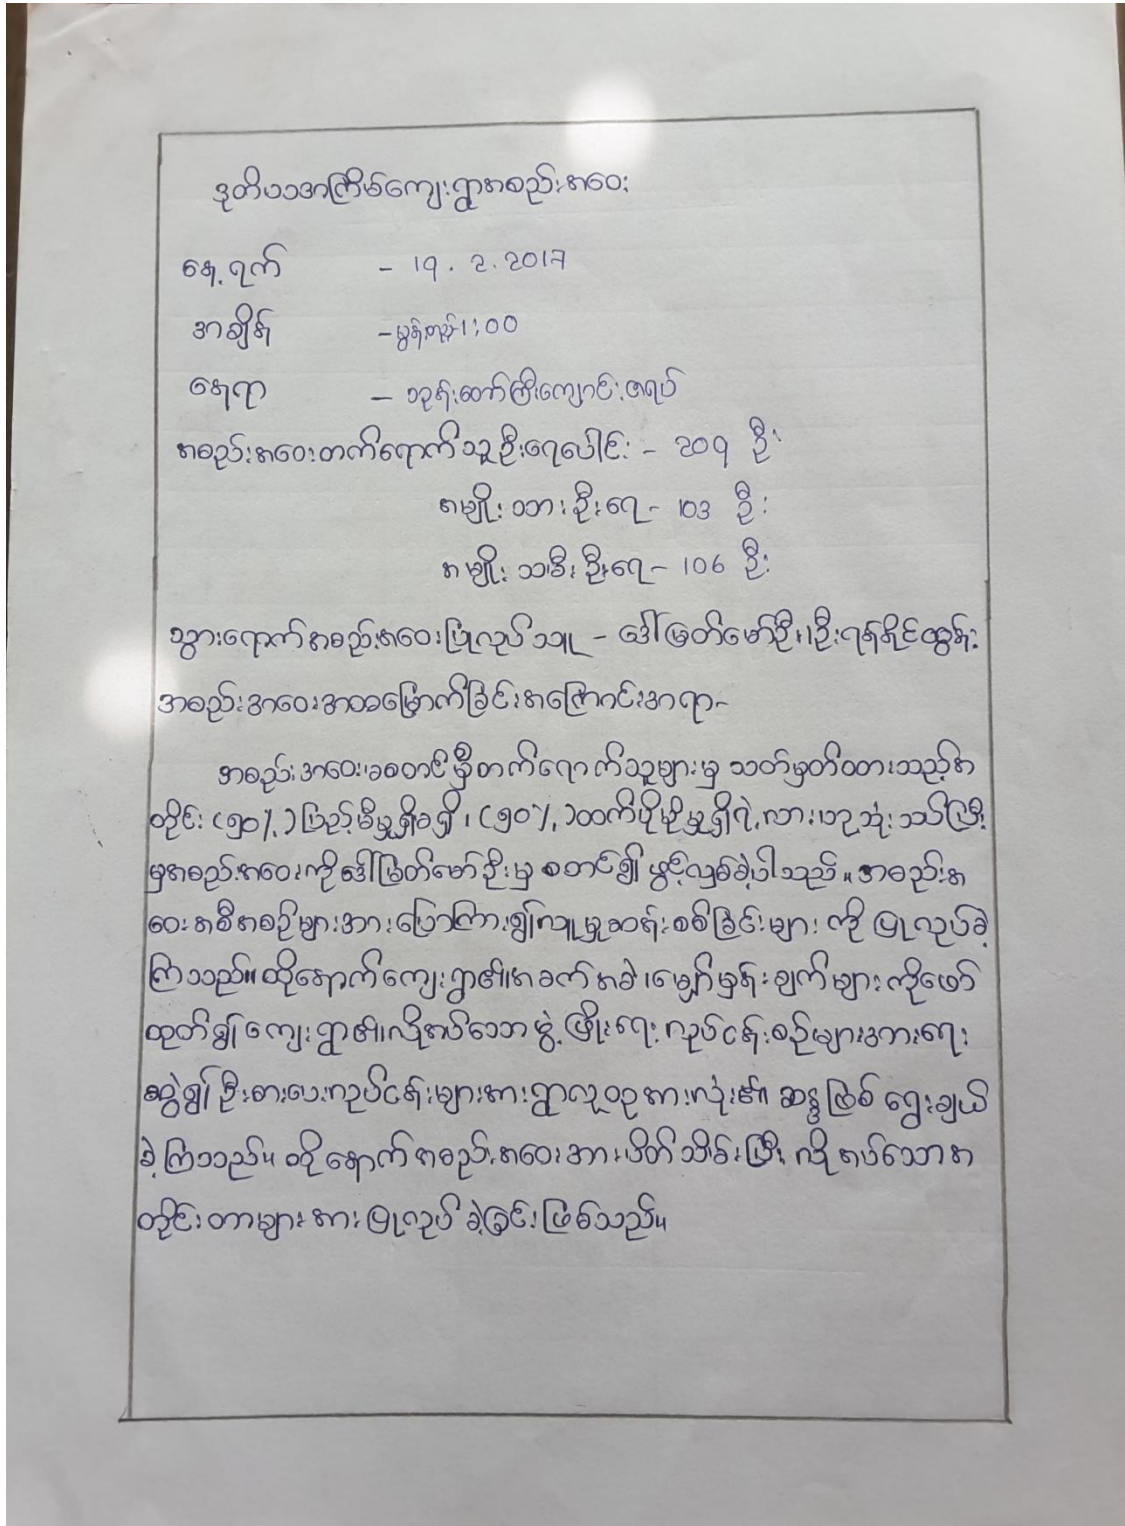 ဒုတိယအကြိမ်ကျေးရွာအစည်းအဝေး
နေ့ရက် - 19 . 2 . 2017
အချိန် - မွန်းတည့် 1:00
နေရာ - သုန်းဆက်ကြီးကျောင်းဇရပ်
အစည်းအဝေးတက်ရောက်သူဦးရေပေါင်း - 209 ဦး
အမျိုးသားဦးရေ - 103 ဦး
အမျိုးသမီးဦးရေ - 106 ဦး
သွားရောက်အစည်းအဝေးပြုလုပ်သူ - ဒေါ်မြတ်မော်ဦး၊ဦးရန်နိုင်ထွန်း
အစည်းအဝေးအထမြောက်ခြင်းအကြောင်းအရာ-
အစည်းအဝေးမစတင်မှီတက်ရောက်သူများမှ သတ်မှတ်ထားသည့်အ
တိုင်း (၅၀%)ပြည့်မီမှုရှိမရှိ၊ (၅၀%)ထက်ပိုမိုမှုရှိရဲ့လားဟုသုံးသပ်ပြီး
မှအစည်းအဝေးကိုဒေါ်မြတ်မော်ဦးမှ စတင်၍ ဖွင့်လှစ်ခဲ့ပါသည်။ အစည်းအ
ဝေးအစီအစဉ်များအားပြောကြား၍လူမှုဆန်းစစ်ခြင်းများ ကို ပြုလုပ်ခဲ့
ကြသည်။ ထို့နောက်ကျေးရွာ၏အခက်အခဲ၊မျှော်မှန်းချက်များကိုဖော်
ထုတ်၍ ကျေးရွာ၏လိုအပ်သောဖွံ့ဖြိုးရေးလုပ်ငန်းစဉ်များအားရေး
ဆွဲ၍ ဦးစားပေးလုပ်ငန်းများအားရွာလူထုအားလုံး၏ ဆန္ဒဖြစ် ရွေးချယ်
ခဲ့ကြသည်။ ထို့နောက် အစည်းအဝေးအားပိတ်သိမ်းပြီး လိုအပ်သောအ
တိုင်းတာများအား ပြုလုပ် ခဲ့ခြင်းဖြစ်သည်။